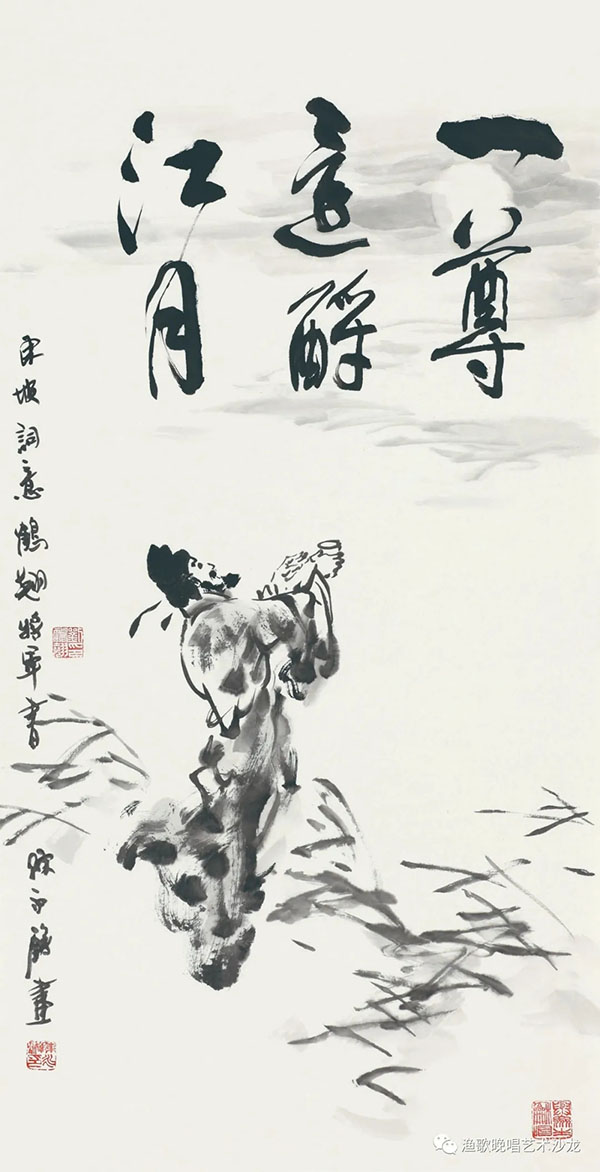 一尊
還酹
江月
東坡詞意鶴翹將軍書
畫
渔歌晚唱艺术沙龙